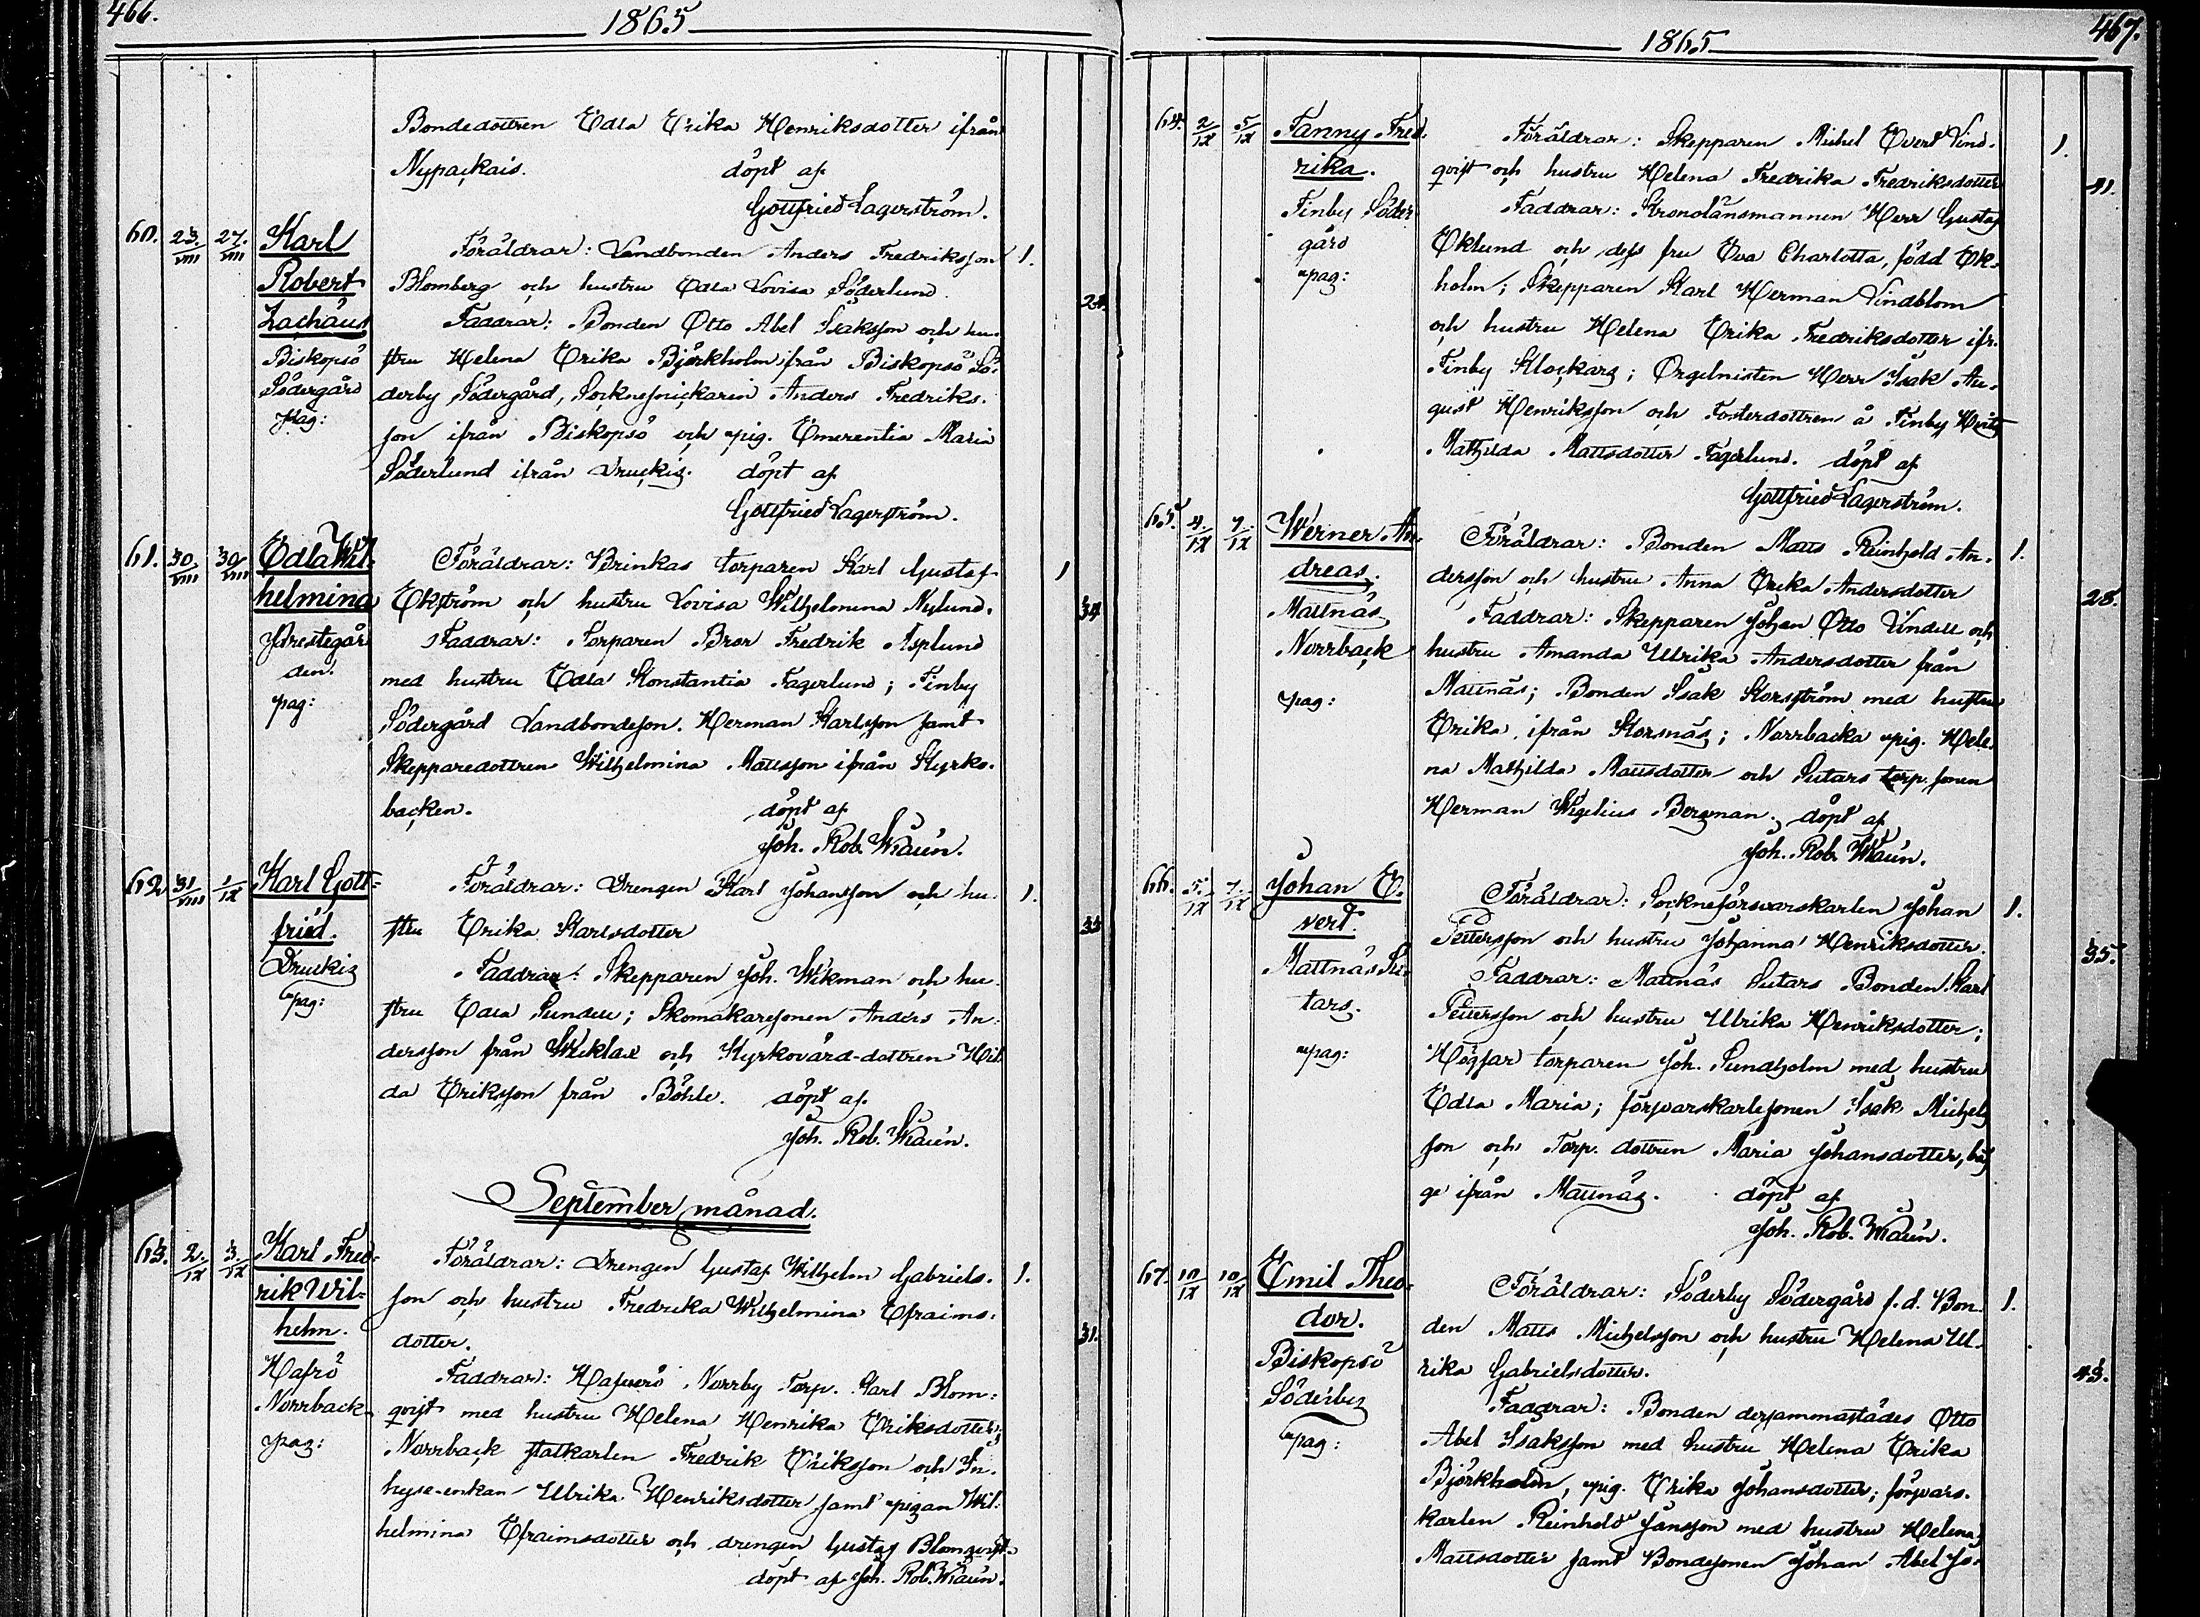 466.
1865
Bondedottren Edla Erika Henriksdotter ifrån
Nypackais. döpt af
Gottfried Lagerström.
60. 23/VIII 27/VIII Karl
Robert
Zachäus
Biskopsö
Södergård
pag:
Föräldrar: Landbonden Anders Fredriksson 1.
Blomberg och hustru Edla Lovisa Söderlund.
24.
Faddrar: Bonden Otto Abel Isaksson och hu-
stru Helena Erika Björkholm från Biskopsö Sö-
derby Södergård, Socknesnickarin Anders Fredriks-
son ifrån Biskopsö och pig. Emerentia Maria
Söderlund ifrån Druckis. döpt af
Gottfried Lagerström.
61. 30/VIII 30/VIII Edla Wil-
helmina
Prestegår
den.
pag:
Föräldrar: Brinkas torparen Karl Gustaf 1
Ekström och hustru Lovisa Wilhelmina Nylund.
34
Faddrar: Torparen Bror Fredrik Asplund
med hustru Edla Konstantia Fagerlund; Finby
Södergård Landbondeson. Herman Karlsson samt
Skepparedottren Wilhelmina Mattsson ifrån Kyrko-
backen. döpt af
Joh. Rob. Widén.
62. 31/VIII 1/IX Karl Gott-
fried.
Druckis
pag:
Föräldrar: Drengen Karl Johansson och hu- 1.
stru Erika Karlsdotter
33
Faddrar: Skepparen Joh. Wikman och hu-
stru Edla Sundell; Skomakaresonen Anders An-
dersson från Wiklax och Kyrkovärd-dottren Hil
da Eriksson från Böhle. döpt af
Joh. Rob. Widén.
September månad.
63. 2./IX 3./IX Karl Fred-
rik Wil-
helm.
Hafrö
Norrback
pag:
Föräldrar: Drengen Gustaf Wilhelm Gabriels- 1.
son och hustru Fredrika Wilhelmina Efraims-
dotter.
31.
Faddrar: Hafverö Norrby Torp. Karl Blom-
qvist med hustru Helena Henrika Eriksdotter;
Norrback statkarlen Fredrik Eriksson och In-
hyse-enkan Ulrika Henriksdotter samt pigan Wil-
helmina Efraimsdotter och drengen Gustaf Blomqvist.
döpt af Joh. Rob. Widén.
467.
1865
64. 2/IX 5/IX Fanny Fred-
rika.
Finby Söder
gård
pag:
Föräldrar: Skepparen Mickel Evert Lind- 1.
qvist och hustru Helena Fredrika Fredriksdotter
41.
Faddrar: Kronolänsmannen Herr Gustaf
Eklund och dess fru Eva Charlotta, född Ek-
holm; Skepparen Karl Herman Lindblom
och hustru Helena Erika Fredriksdotter ifr.
Finby Klockars; Orgelnisten Herr Isak Au-
gust Henriksson och Fosterdottren å Finby
Mathilda Mattsdotter Fagerlund. döpt af
Gottfried Lagerström.
65. 4./IX 7./IX Werner An-
dreas.
Mattnäs
Norrback
pag:
Föräldrar: Bonden Matts Reinhold An- 1.
dersson och hustru Anna Erika Andersdotter
28.
Faddrar: Skepparen Johan Otto Lindell och
hustru Amanda Ulrika Andersdotter från
Mattnäs; Bonden Isak Korsström med hustru
Erika, ifrån Korsnäs; Norrbacka pig. Hele-
na Mathilda Mattsdotter och Sutars torp.sonen
Herman Wigelius Bergman. döpt af
Joh. Rob. Widén.
66. 5./IX 7./IX Johan E-
vert.
Mattnäs Su-
tars.
pag:
Föräldrar: Sockneförsvarskarlen Johan 1.
Pettersson och hustru Johanna Henriksdotter.
35.
Faddrar: Mattnäs Sutars Bonden Karl
Pettersson och hustru Ulrika Henriksdotter;
Högsar torparen Joh. Sundholm med hustru
Edla Maria; försvarskarlesonen Isak Michels
son och Torp. dottren Maria Johansdotter, bäg
ge ifrån Mattnäs. döpt af
Joh. Rob. Widén.
67. 10/IX 10/IX Emil Theo-
dor.
Biskopsö
Söderby
pag:
Föräldrar: Söderby Södergård f.d. Bon- 1.
den Matts Michelsson och hustru Helena Ul-
rika Gabrielsdotter.
43.
Faddrar: Bonden dersammastädes Otto
Abel Isaksson med hustru Helena Erika
Björkholm, pig. Erika Johansdotter; försvars-
karlen Reinhold Jansson med hustru Helena
Mattsdotter samt Bondesonen Johan Abel Jo-